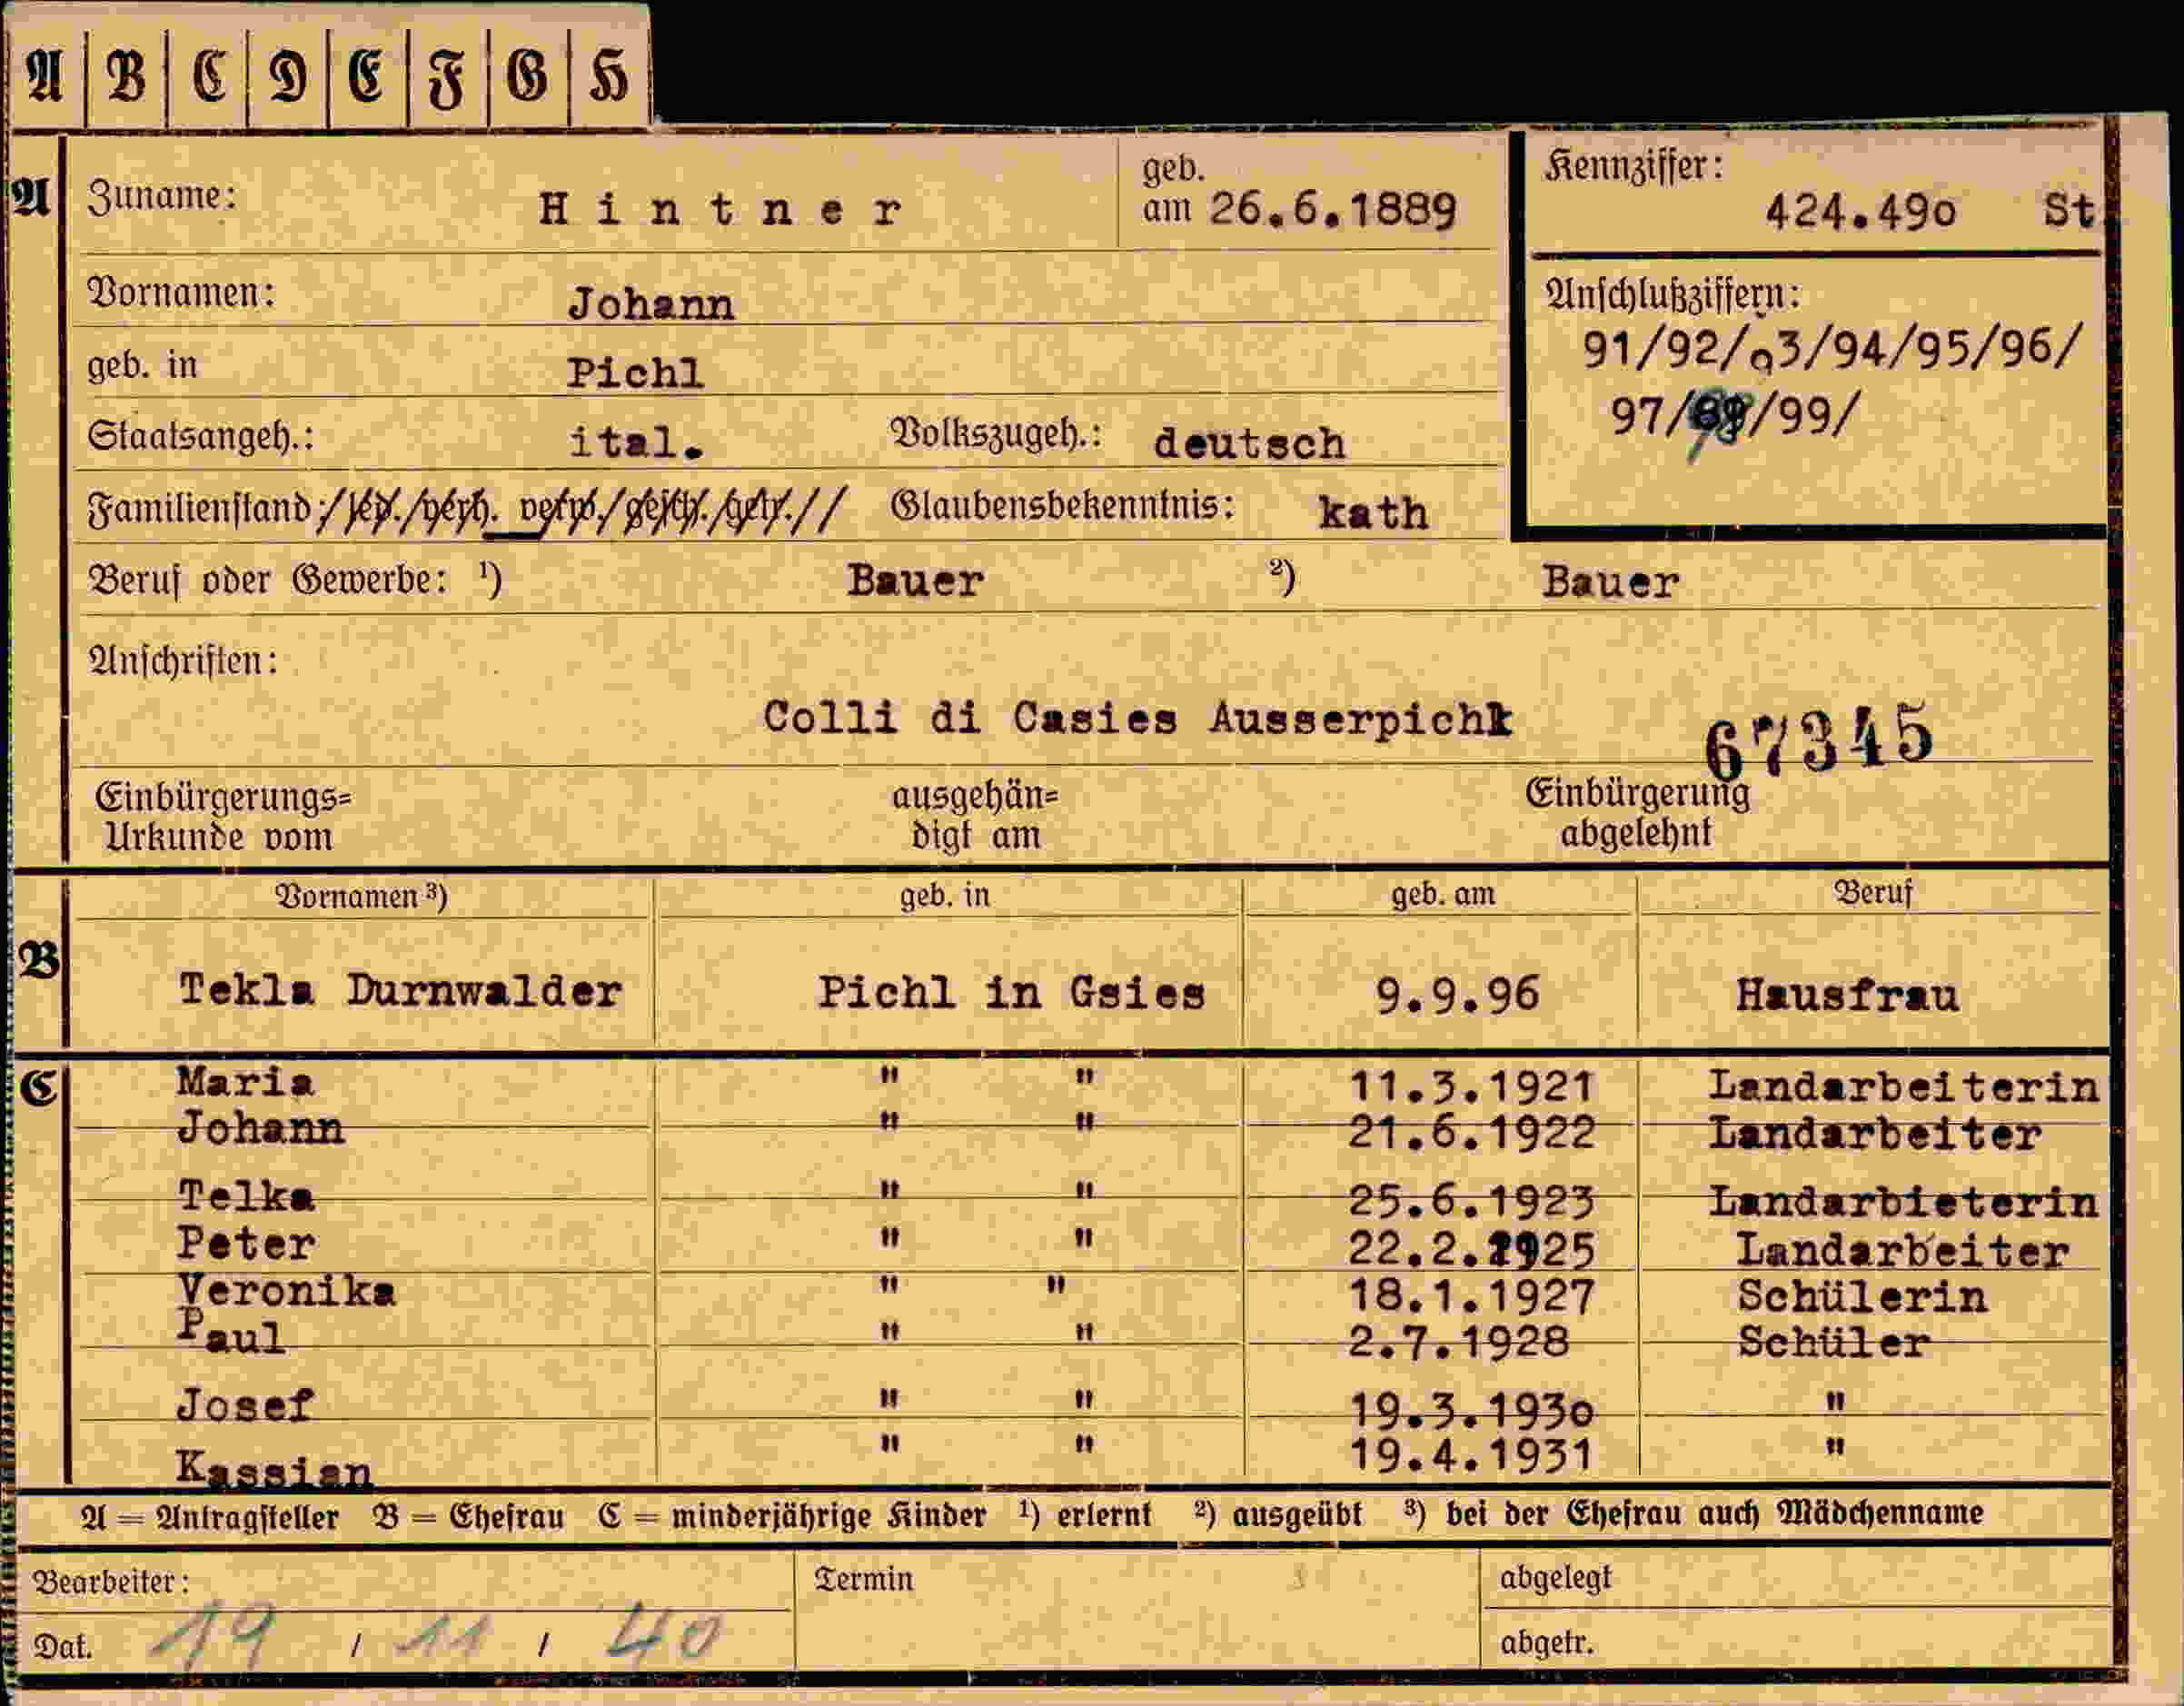 A B C D E F G H
A Zuname: Hintner geb. am 26.6.1889 Kennziffer: 424.490 St
Vornamen: Johann Anschlußziffern:
91/92/93/94/95/96/
geb. in Pichl
97/98/99/
Staatsangeh.: ital. Volkszugeh.: deutsch
Familienstand: led./verh. verw./gesch./getr. Glaubensbekenntnis: kath
Beruf oder Gewerbe: ¹) Bauer ²) Bauer
Anschriften:
Colli di Casies Ausserpichl 67345
Einbürgerungs= ausgehän= Einbürgerung
Urkunde vom digt am abgelehnt
Vornamen ³) geb. in geb. am Beruf
B Tekla Durnwalder Pichl in Gsies 9.9.96 Hausfrau
C Maria " " 11.3.1921 Landarbeiterin
Johann " " 21.6.1922 Landarbeiter
Telka " " 25.6.1923 Landarbieterin
Peter " " 22.2.1925 Landarbeiter
Veronika " " 18.1.1927 Schülerin
Paul " " 2.7.1928 Schüler
Josef " " 19.3.1930 "
Kassian " " 19.4.1931 "
A = Antragsteller B = Ehefrau C = minderjährige Kinder ¹) erlernt ²) ausgeübt ³) bei der Ehefrau auch Mädchenname
Bearbeiter: Termin abgelegt
Dat. 19 / 11 / 40 abgetr.